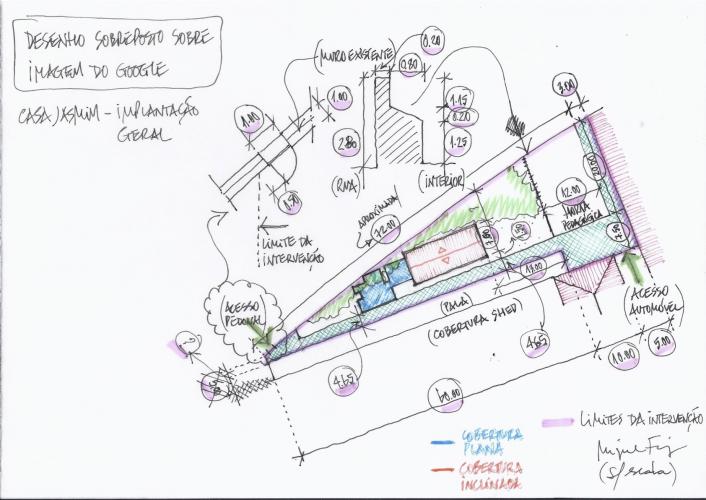 DESENHO SOBREPOSTO SOBRE
IMAGEM DO GOOGLE
CASA JASMIM - IMPLANTAÇÃO
GERAL
(MURO EXISTENTE)
0.20
0.80
1.00
1.00
1.50
2.80
1.15
0.20
1.25
(RUA)
(INTERIOR)
LIMITE DA
INTERVENÇÃO
APROXIMADA
72.00
3.00
20.50
12.00
HORTA
PEDAGÓGICA
7.50
13.00
ACESSO
PEDONAL
(PALA)
(COBERTURA SHED)
(ACESSO
AUTOMÓVEL)
4.65
4.65
60.00
10.00
5.00
LIMITES DA INTERVENÇÃO
COBERTURA
PLANA
COBERTURA
INCLINADA
(S/ESCALA)